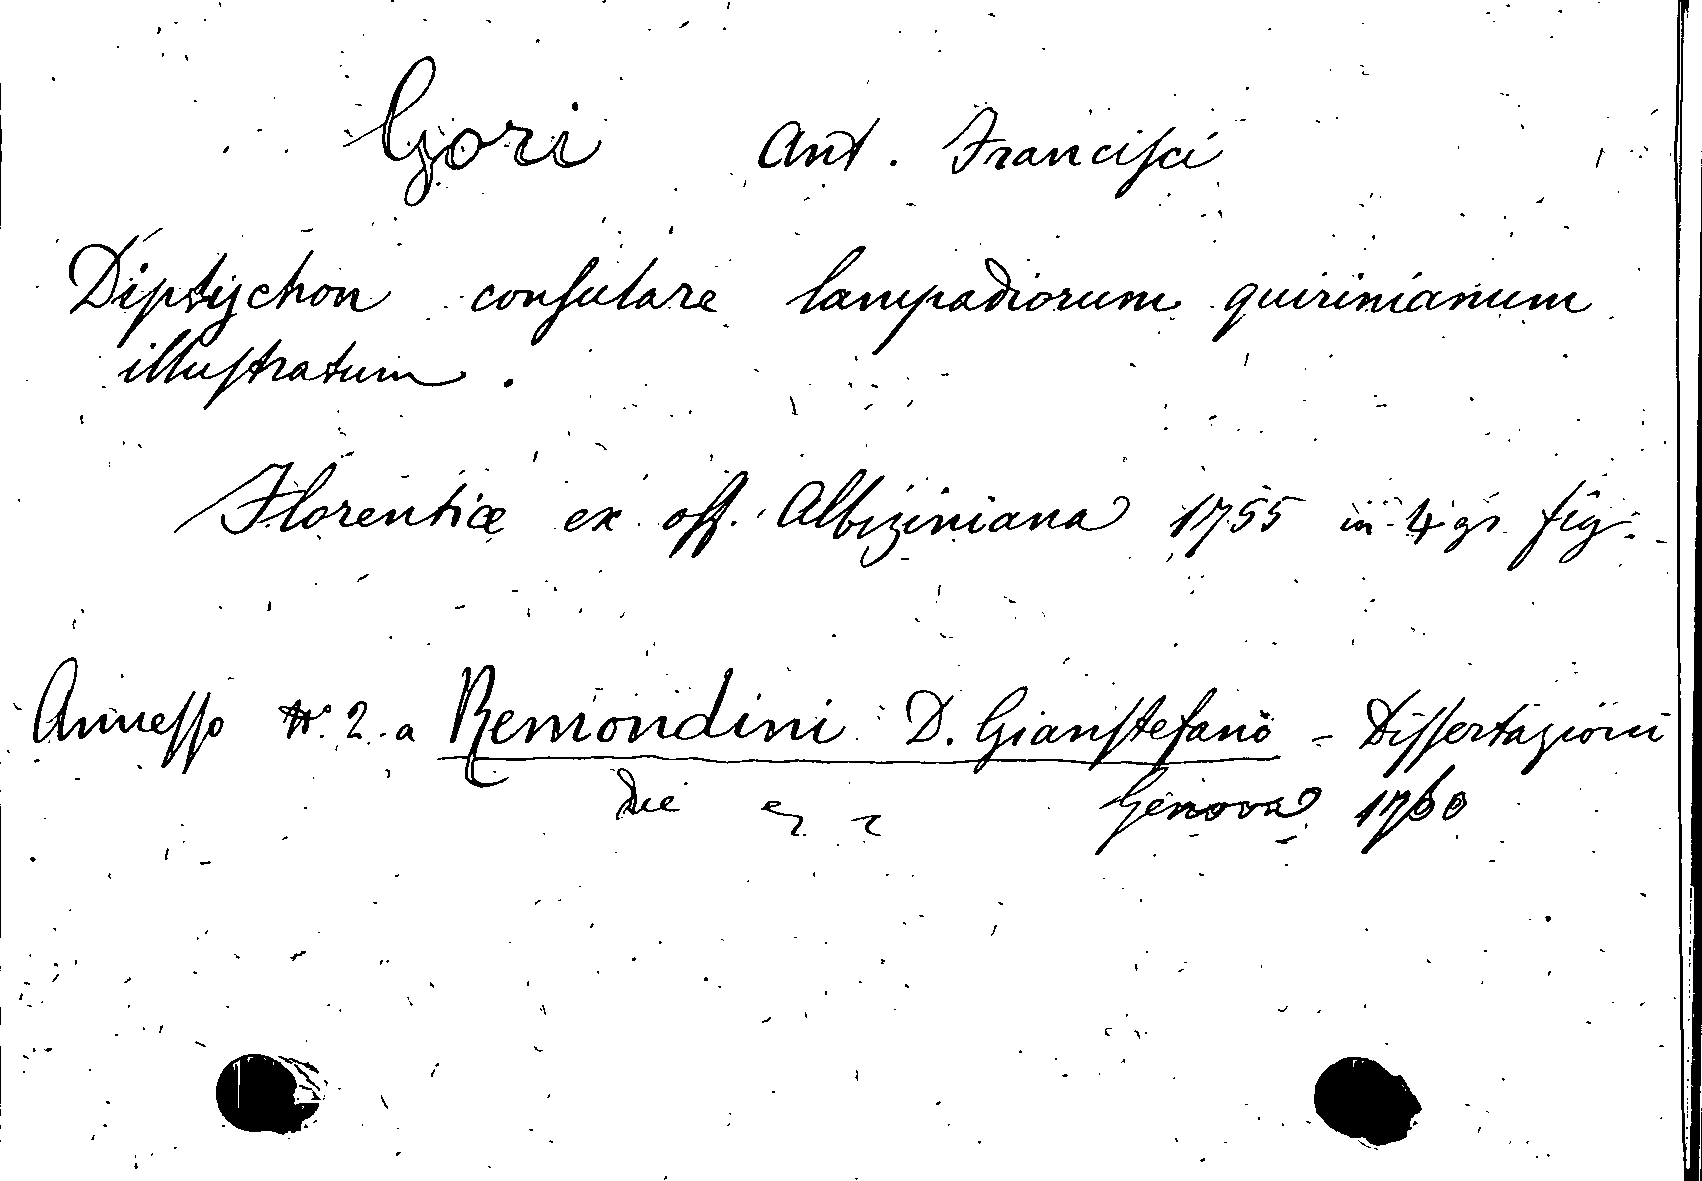 Gori Ant. Francisci
Diptychon consulare lampadiorum quirinianum
illustratum.
Florentiæ ex off. Albiziniana 1755 in 4 gr. fig.
Annesso N. 2. a Remondini D. Gianstefano - Dissertazioni
due Genova 1760